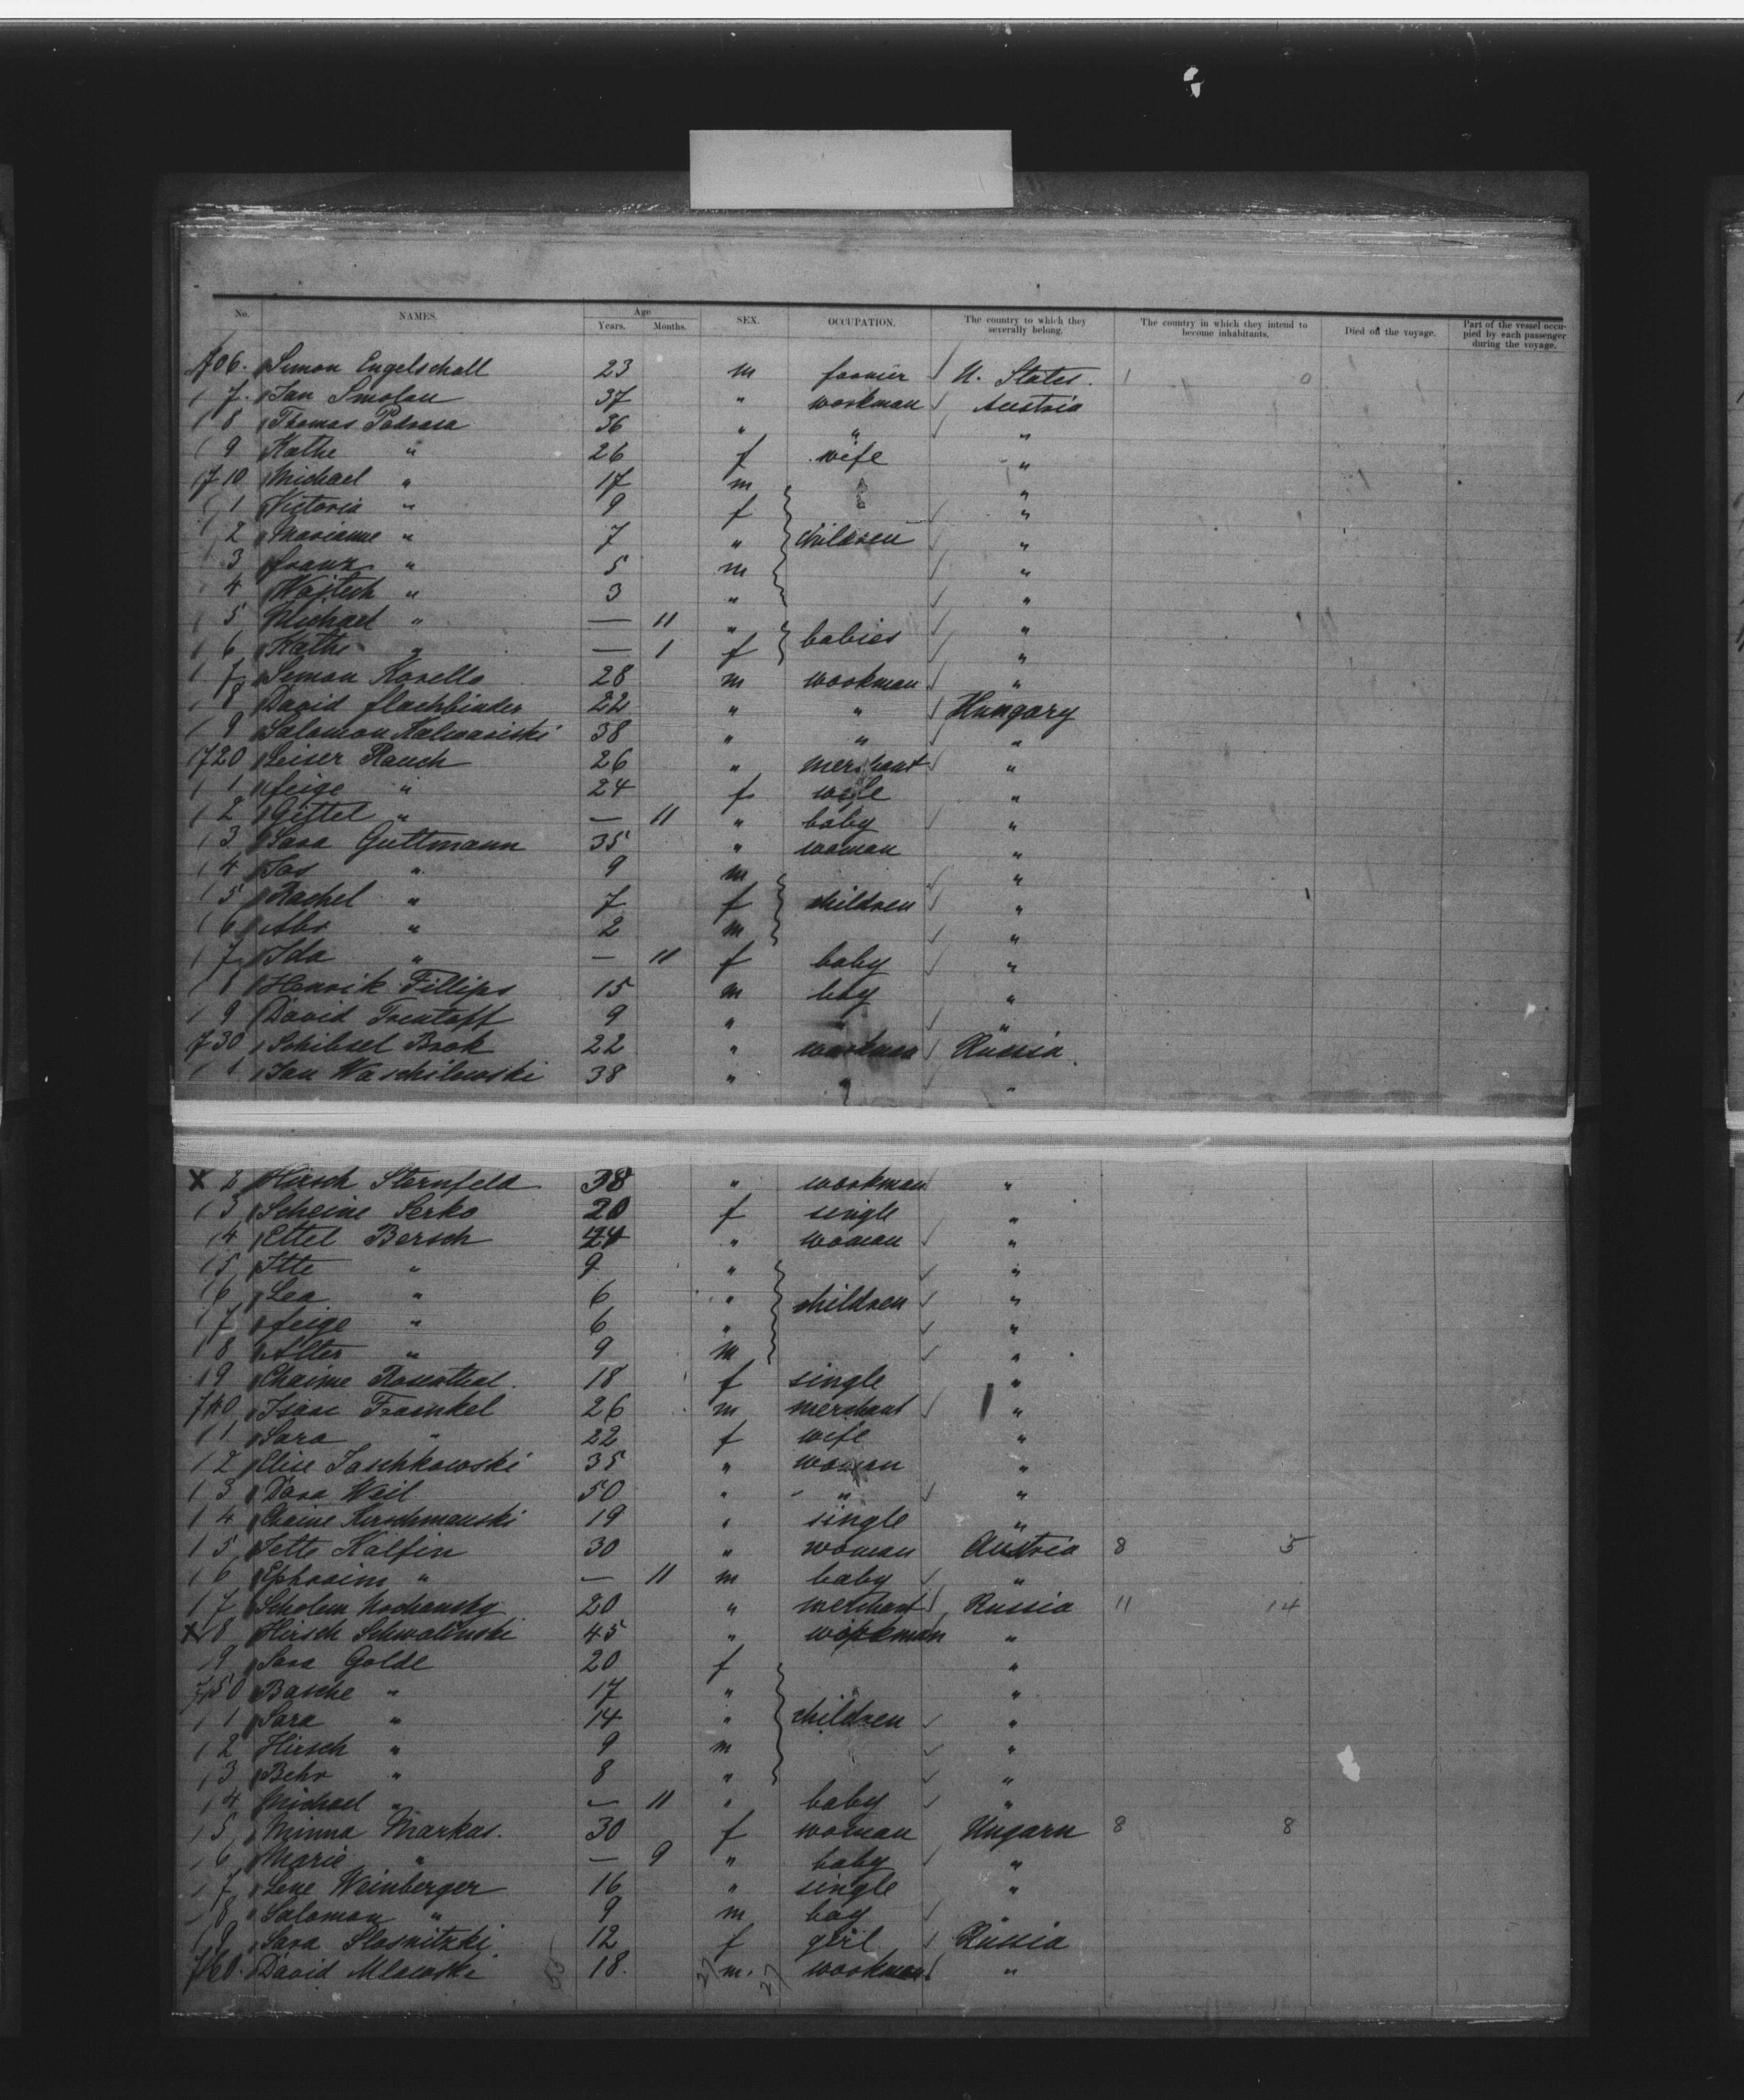 No. NAMES. Age Years. Months. SEX. OCCUPATION. The country to which they severally belong. The country in which they intend to become inhabitants. Died on the voyage. Part of the vessel occupied by each passenger during the voyage.
706. Simon Engelschall 23 m farmer U. States. 1 0
7. Jan Smolan 37 " workman Austria
8 Thomas Podrasa 36 " " "
9 Kathe " 26 f wife "
710 Michael " 17 m "
1 Victoria " 9 f "
2 Marianne " 7 " children "
3 franz " 5 m "
4 Wojtech " 3 " "
5 Michael " — 11 " babies "
6 Kathe " — 1 f "
7 Simon Kosello 28 m workman "
8 David flachbinder 22 " " Hungary
9 Salomon Kalwariski 38 " " "
720 Leiser Rauch 26 " merchant "
1 feige " 24 f wife "
2 Gittel " — 11 " baby "
3 Sara Guttmann 35 " woman "
4 Jos " 9 m "
5 Rachel " 7 f children "
6 Abr " 2 m "
7 Ida " — 11 f baby "
8 Henrik Fillips 15 m boy "
9 David Trentaff 9 " " "
730 Schibsel Brok 22 " workman Russia
1 Jan Waschilewski 38 " " "
X 2 Hirsch Sternfeld 38 " workman "
3 Scheine Serko 20 f single "
4 Ettel Bersch 44 " woman "
5 Itte " 9 " "
6 Lea " 6 " children "
7 feige " 6 " "
8 Alter " 9 m "
9 Chaime Rosenthal 18 f single "
740 Isaac Fraenkel 26 m merchant "
1 Sara " 22 f wife "
2 Elise Jaschkowski 35 " woman "
3 Dora Weil 50 " " "
4 Chaine Kirschmanski 19 " single "
5 Jette Kalfin 30 " woman Austria 8 5
6 Ephraim " — 11 m baby "
7 Scholem Nochansky 20 " merchant Russia 11 14
X 8 Hirsch Schwalinski 45 " workman "
9 Sara Golde 20 f "
750 Basche " 17 " "
1 Sara " 14 " children "
2 Hirsch " 9 m "
3 Behr " 8 " "
4 Michael " — 11 " baby "
5 Minna Markus. 30 f woman Ungarn 8 8
6 Marie " — 9 " baby "
7 Lene Weinberger 16 " single "
8 Salomon " 9 m boy "
9 Sara Slosnitzki 12 f girl Russia
760. David Mlawski 55 18. 27 m. 27 workman "